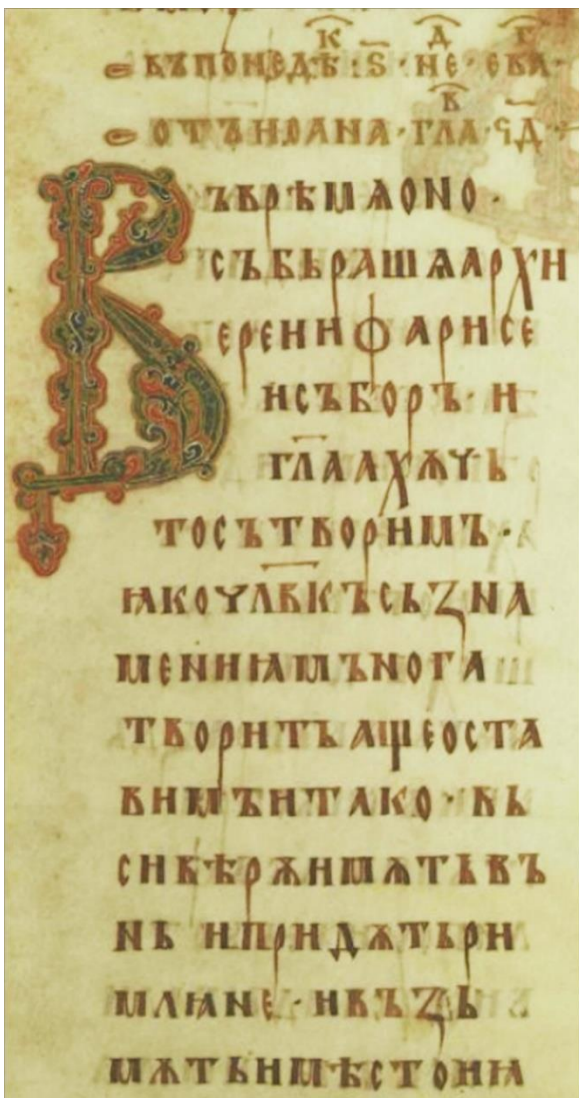 въпонедѣ·ѕ҃·не·ева·
отъиоана·гла·чд҃·
Въврѣмѧоно·
събьрашѧархи
ереиифарисе
исъборъ·и
гл҃аахѫуь
тосътворимъ·
ꙗкоулв҃късьꙁна
мениꙗмънога
творитъащеоста
вимъитако·вь
сивѣрѫимѫтьвъ
нь ипридѫтьри
млꙗне·ивъꙁь
мѫтьимѣстоиꙗ